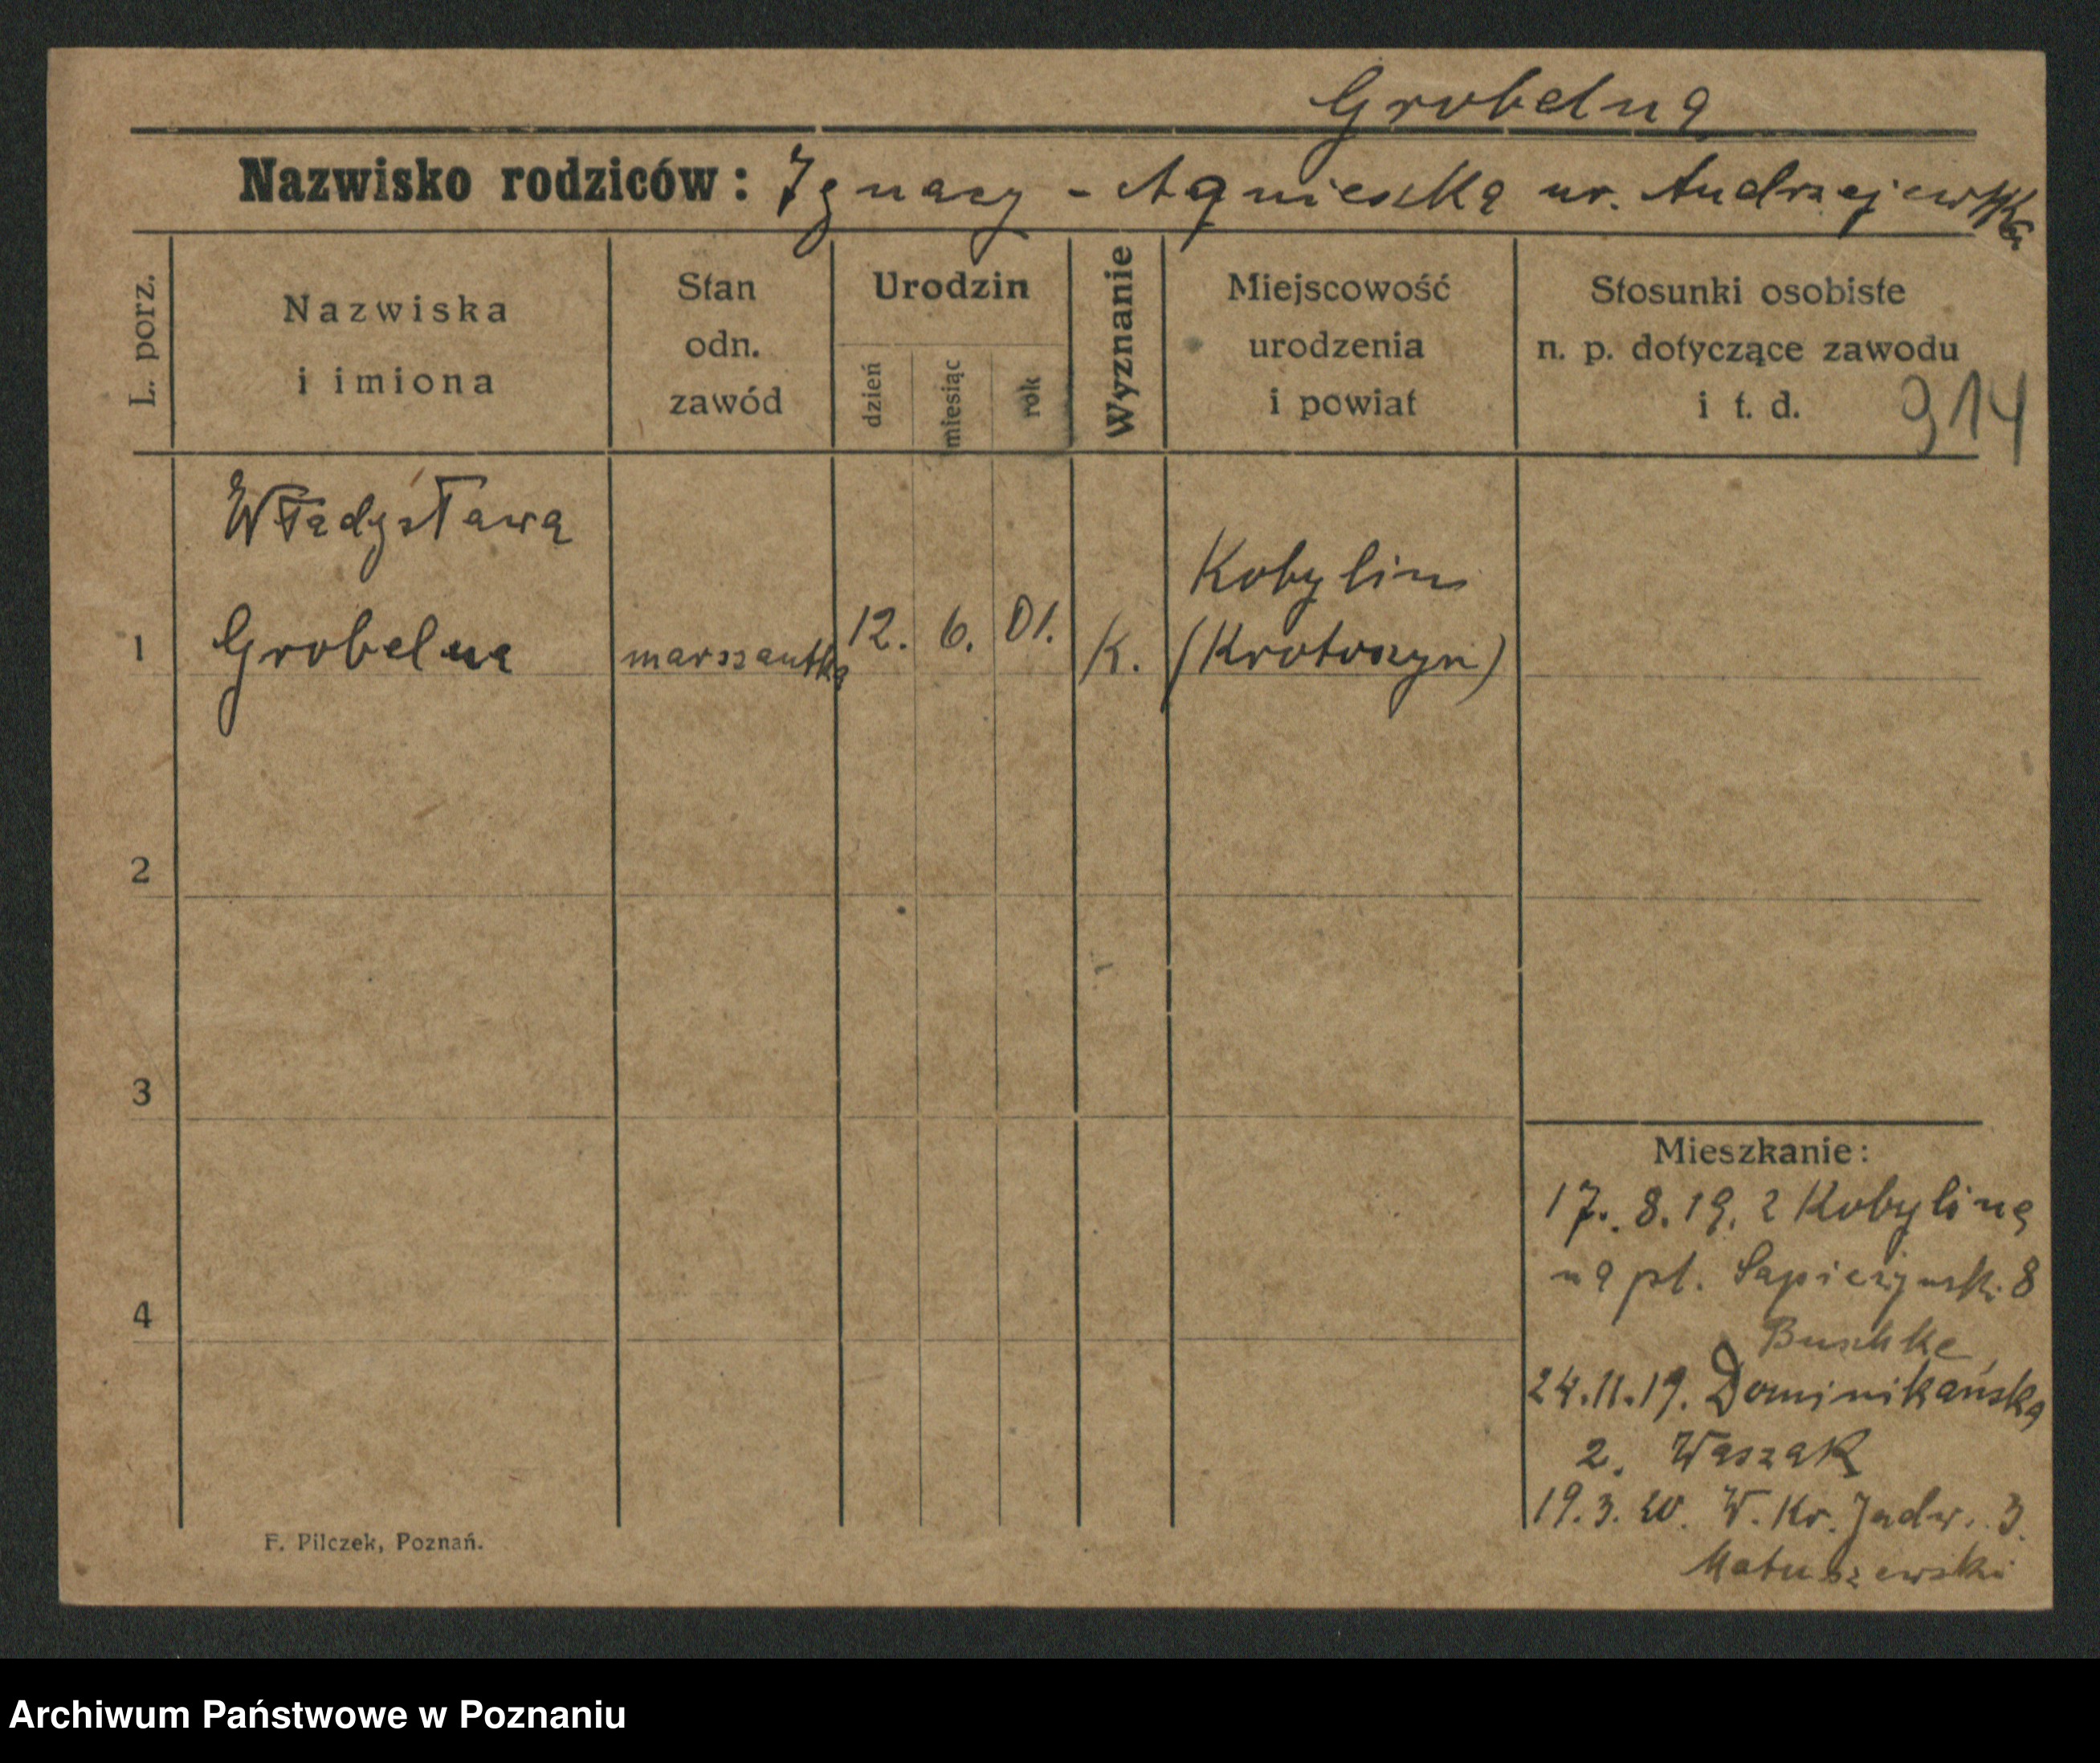 Grobelna
Nazwisko rodziców: Ignacy - Agnieszka ur. Andrzejewska
L. porz.
Nazwiska
i imiona
Stan
odn.
zawód
Urodzin
dzień
miesiąc
rok
Wyznanie
Miejscowość
urodzenia
i powiat
Stosunki osobiste
n. p. dotyczące zawodu
i t. d.
914
Władysława
1 Grobelna marszantka 12. 6. 01. K. Kobylin
(Krotoszyn)
2
3
4
Mieszkanie:
17. 8. 19. z Kobylina
na pl. Sapieżynsk. 8
Buschke,
24.11.19. Dominikańska
2. Waszak
19. 3. 20. W. Kr. Jadw. 3.
Matuszewski
F. Pilczek, Poznań.
Archiwum Państwowe w Poznaniu